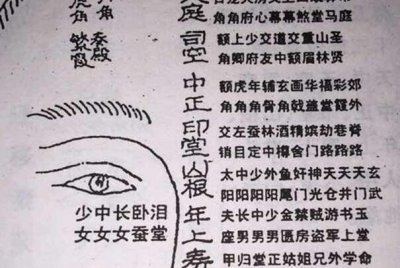 角角府心幕幕煞堂马庭
司空
额上少交道交重山圣
角卿府友中额眉林贤
中正
额虎年辅玄画华福彩郊
角角角骨角戟盖堂霞外
印堂
交左蚕林酒精嫔劫巷脊
销目定中樽舍门路路路
山根
太中少外鱼奸神天天天玄
阳阳阳阳尾门光仓井门武
年上
夫长中少金禁贼游书玉
座男男男匮房盗军上堂
寿
甲归堂正姑姐兄外学命
少中长卧泪
女女女蚕堂